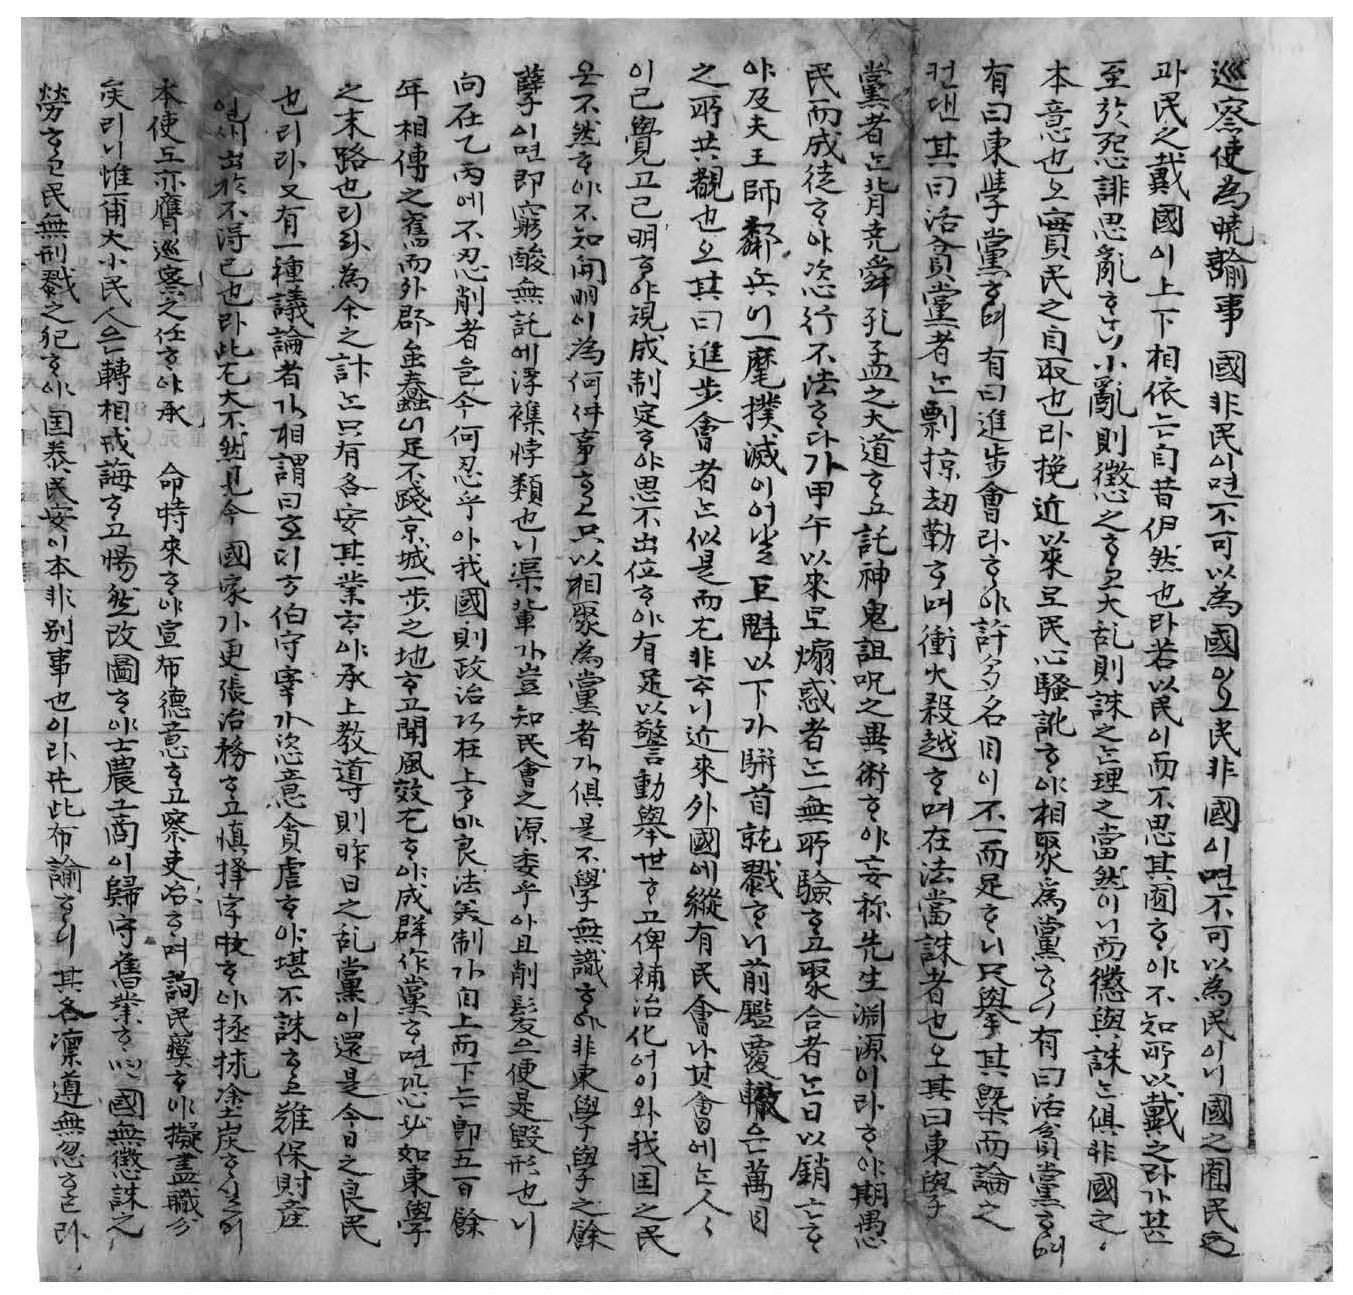 巡察使爲曉諭事 國非民이면不可以爲國이오民非 國이면不可以爲民이니國之囿民
과民之戴國이上下相依는自昔伊然也라若以民이而不思其囿하야不知所以戴之라가甚
至於怨誹思亂하나니小亂則懲之하고大乱則誅之는理之當然이니而懲與誅는俱非國之
本意也오寔民之自取也라挽近以來로民心騷訛하야相聚爲黨하니有曰活貧黨하며
有曰東學黨하며有曰進步會라하야許多名目이不一而足하니只擧其槩而論之
컨댄其曰活貧黨者는剽掠劫勒하며衝火殺越하며在法當誅者也오其曰東學
黨者는背堯舜孔孟之大道하고託神鬼詛呪之異術하야妄称先生淵源이라하야期愚
民而成徒하야恣行不法하다가甲午以來로煽惑者는一無所驗하고聚合者는日以銷亡하
야及夫王師鄰兵이一麾撲滅이어날巨魁以下가騈首就戮하니前鑑覆轍은萬目
之所共覩也오其曰進步會者는似是而大非하니近來外國에縱有民會나其會에는人人
이己覺고己明하야視成制定하야思不出位하야有足以警動擧世하고俾補治化어이와我国之民
은不然하야不知開明이爲何件事하고只以相聚爲黨者가俱是不學無識하야非東學學之餘
孼이면即窮酸無託에浮襍悖類也니渠輩가豈知民會之源委乎아且削髮으便是毁形也니
向在乙丙에不忍削者을今何忍乎아我國則政治에在上하야良法美制가自上而下는即五百餘
年相傳之舊而外郡蚩蠢이足不踐京城一步之地하고聞風效尤하야成群作黨하면恐必如東學
之末路也리라爲今之計는只有各安其業하야承上教導則昨日之乱黨이還是今日之良民
也리라又有一種議論者가相謂曰호디方伯守宰가恣意貪虐하야堪不誅하고難保財產
일새出於不得已也라此尤大不然見今 國家가更張治務하고愼擇字牧하야拯捄塗炭하실새
本使도亦膺巡察之任하야承 命時來하야宣布德意하고察吏治하며詢民瘼하야擬盡職分
矣리니惟爾大小民人은轉相戒誨하고惕然改圖하야士農工商이歸守舊業하야 國無懲誅之
勞하고民無刑戮之犯하야国泰民安이本非別事也이라玆此布諭하니其各凜遵無忽하라